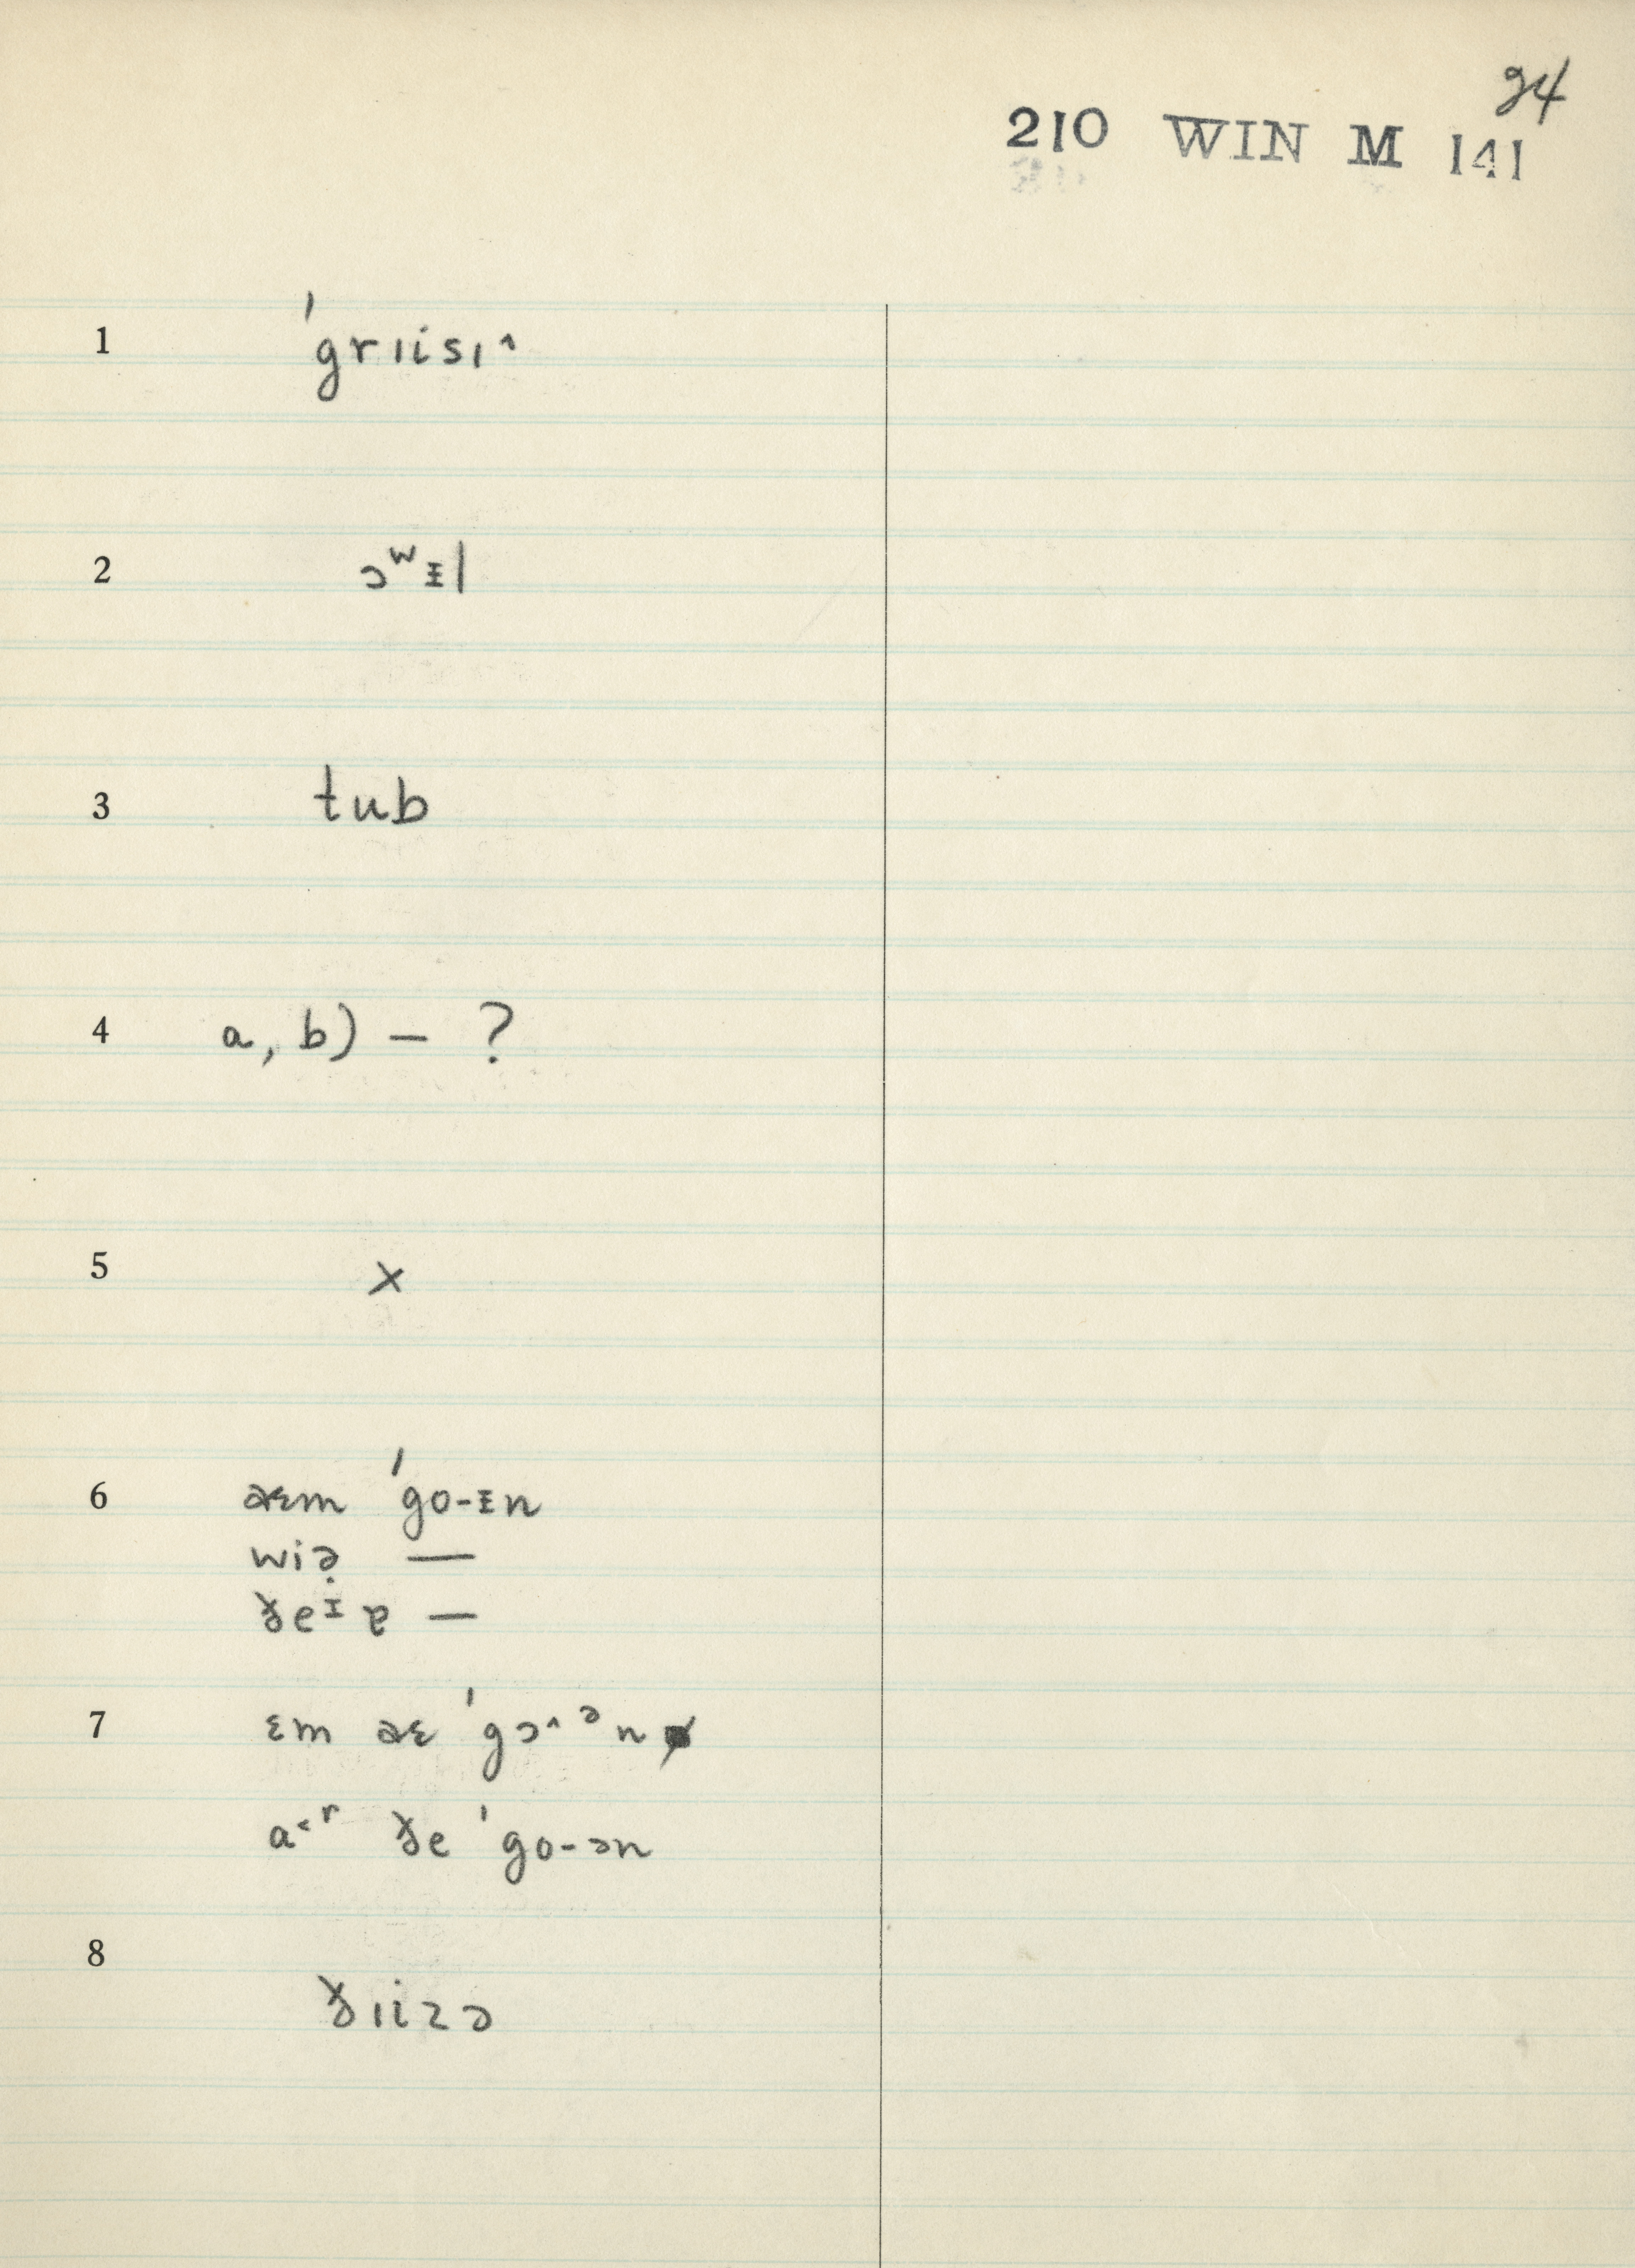 94
210 WIN M 141
1 ˈgrıisı˄
2 ɔʷᵻl
3 tub
4 a, b) — ?
5 x
6 æɛm ˈgo-ᵻn
wiə̣ —
ɣ̵eᴵ ɐ —
7 ɛm æɛ ˈgɔ˄ᵊn
a˂ʳ ɣ̵e ˈgo-ən
8 ɣ̵ıizə